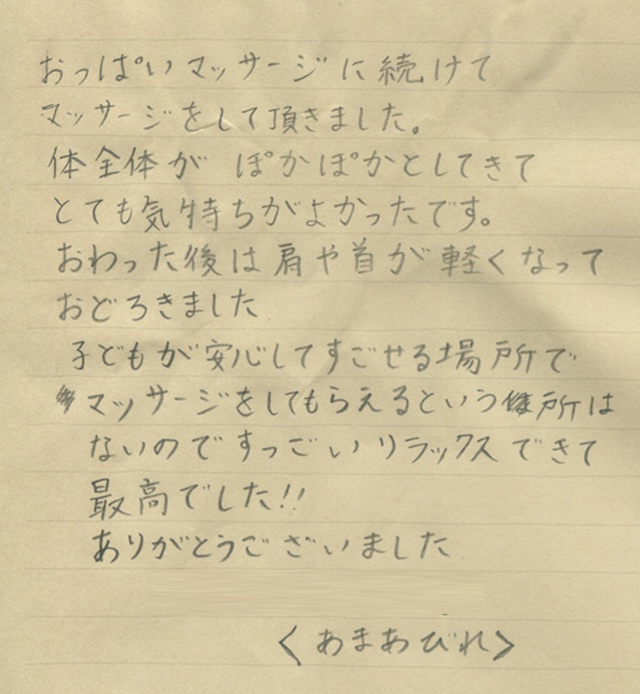 おっぱいマッサージに続けて
マッサージをして頂きました。
体全体が ぽかぽかとしてきて
とても気持ちがよかったです。
おわった後は肩や首が軽くなって
おどろきました
子どもが安心してすごせる場所で
マッサージをしてもらえるという所は
ないのですっごいリラックスできて
最高でした!!
ありがとうございました
<あまあびれ>